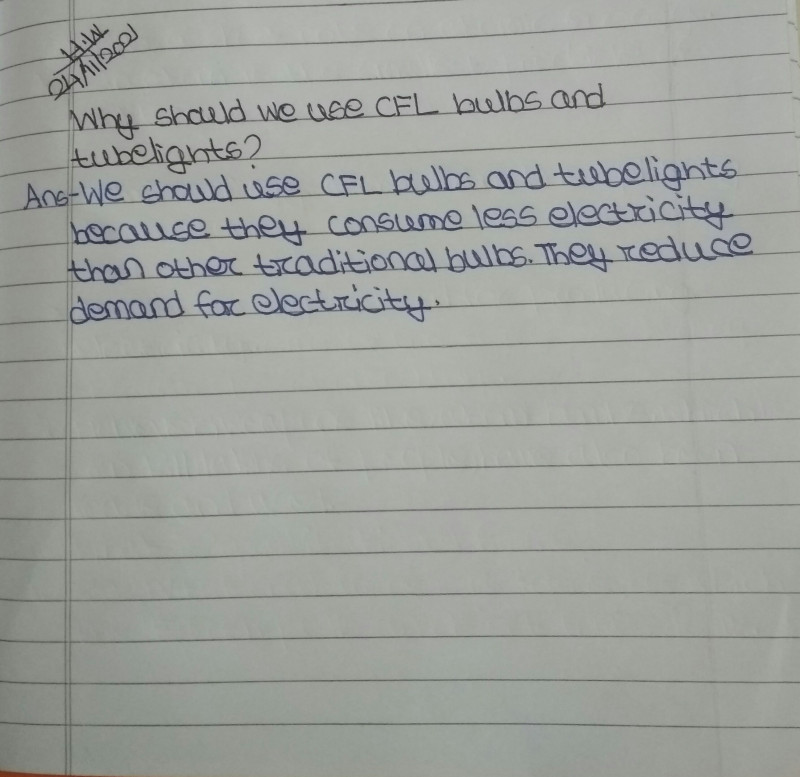 H.W
Why should we use CFL bulbs and
tubelights?
Ans-We should use CFL bulbs and tubelights
because they consume less electricity
than other traditional bulbs. They reduce
demand for electricity.